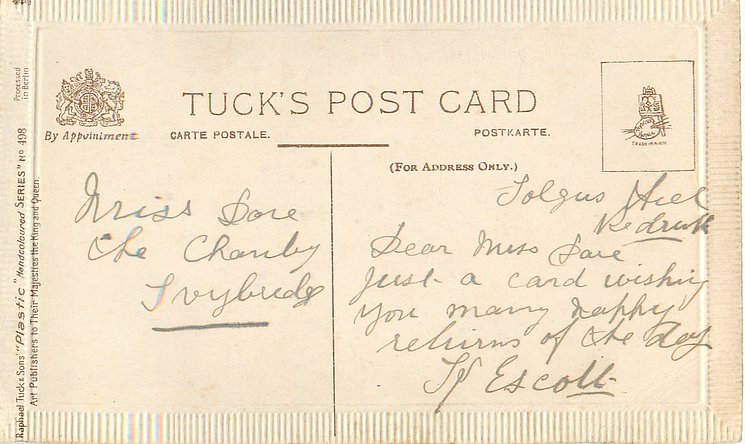 Processed
in Berlin
Raphael Tuck & Sons' "Plastic" "Handcoloured SERIES" No 498
Art Publishers to Their Majesties the King and Queen.
By Appointment
TUCK'S POST CARD
CARTE POSTALE.
POSTKARTE.
TRADE MARK
(FOR ADDRESS ONLY.)
Miss Dore
the
Ivybridge
Tolgus Hill
Redruth
Dear Miss Dore
Just a card wishing
you many happy
returns of the day
Escott